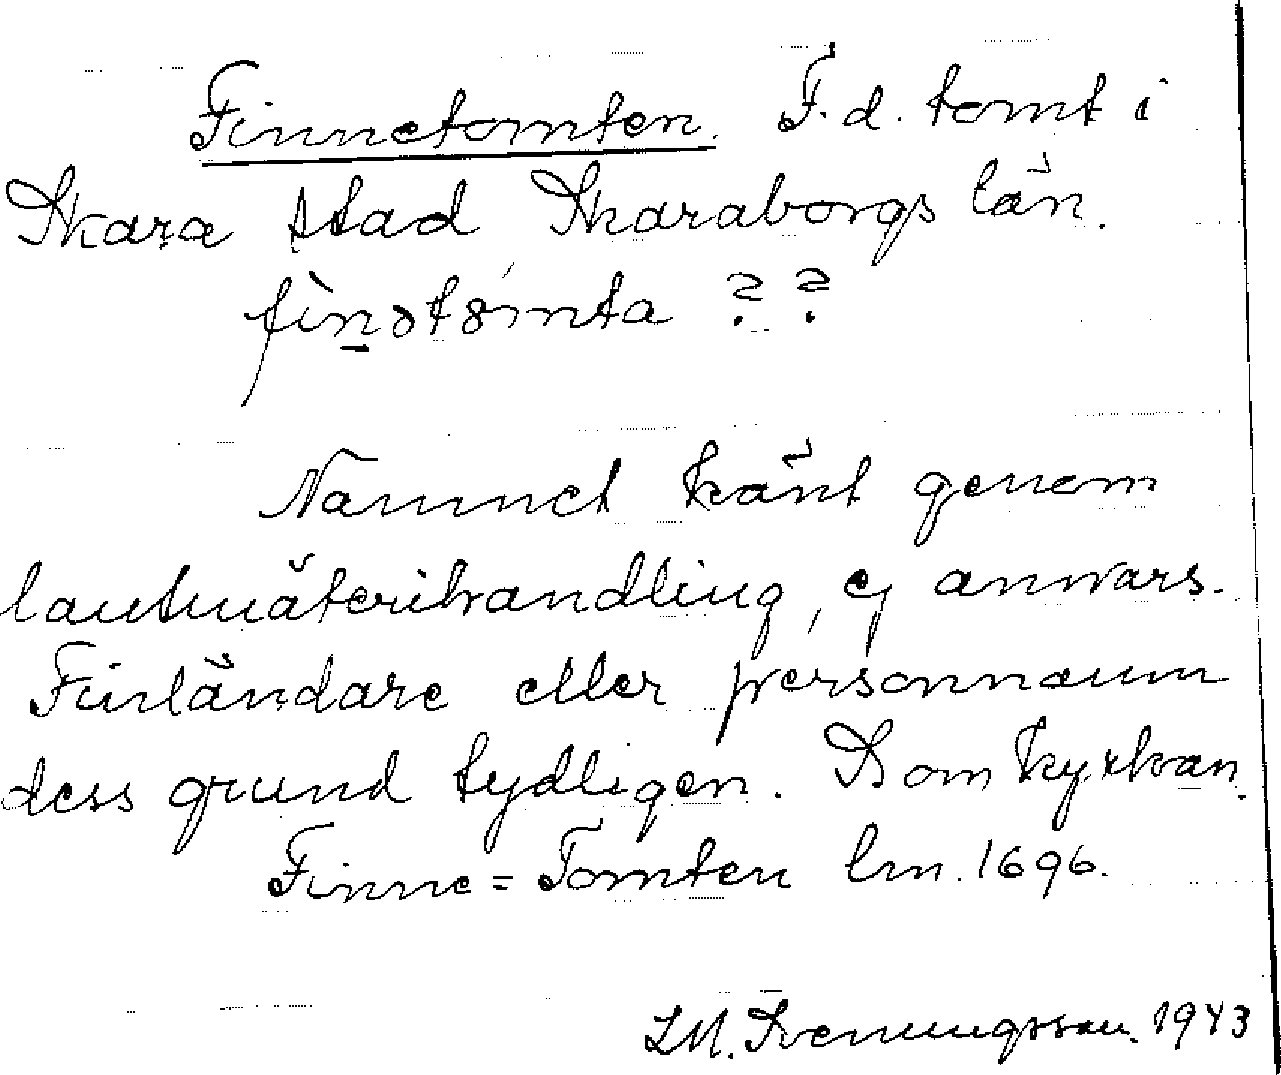 Finnetomten. F.d. tomt i
Skara stad Skaraborgs län.
fìnətómta ??
Namnet känt genom
lantmäterihandling, ej annars.
Finländare eller personnamn
dess grund tydligen. Dom kyrkan.
Finne=Tomten lm. 1696.
LM. Svenungsson. 1943